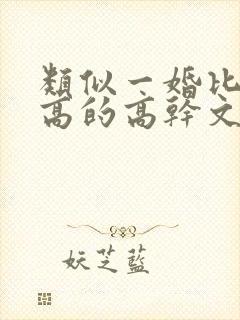 類似一婚比
高的高幹文
妖芝藍